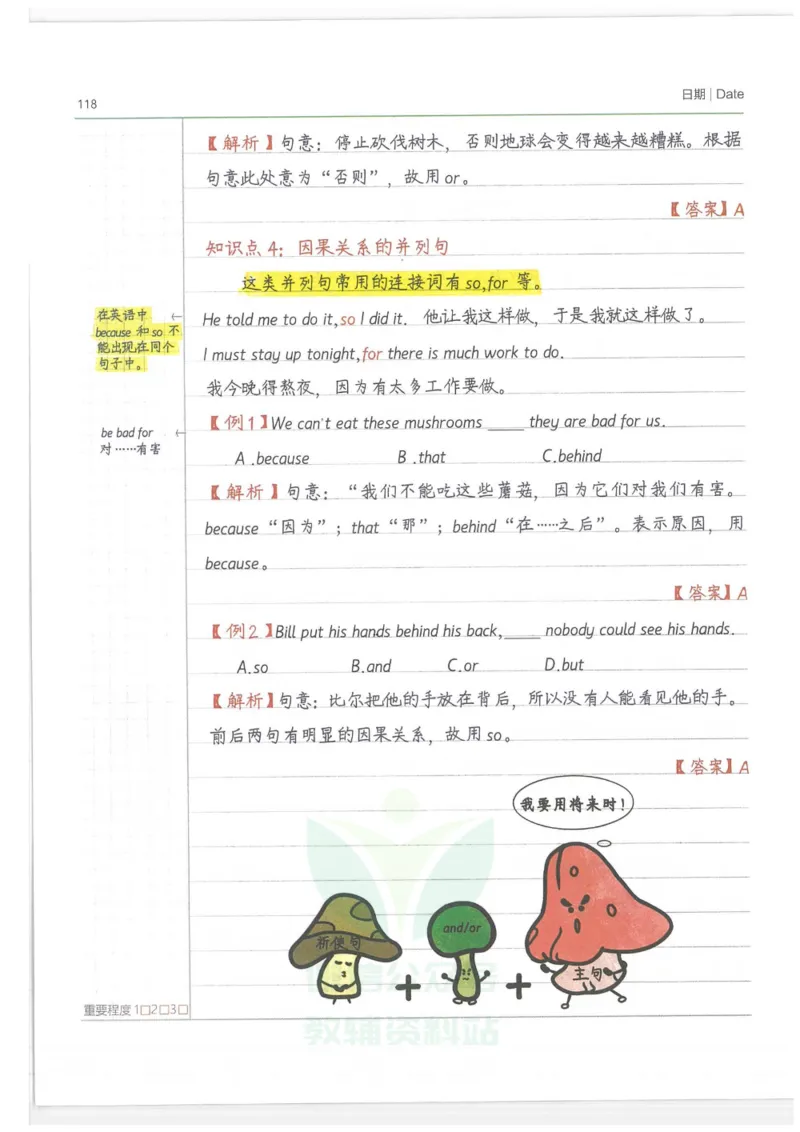 118
日期 | Date
【解析】句意：停止砍伐树木，否则地球会变得越来越糟糕。根据
句意此处意为“否则”，故用 or。
【答案】A
知识点 4：因果关系的并列句
这类并列句常用的连接词有 so,for 等。
在英语中
because 和 so 不
能出现在同个
句子中。
He told me to do it,so I did it. 他让我这样做，于是我就这样做了。
I must stay up tonight,for there is much work to do.
我今晚得熬夜，因为有太多工作要做。
【例1】We can't eat these mushrooms _____ they are bad for us.
be bad for
对……有害
A .because B .that C.behind
【解析】句意：“我们不能吃这些蘑菇，因为它们对我们有害。
because“因为”；that“那”；behind“在……之后”。表示原因，用
because。
【答案】A
【例2】Bill put his hands behind his back,_____ nobody could see his hands.
A.so B.and C.or D.but
【解析】句意：比尔把他的手放在背后，所以没有人能看见他的手。
前后两句有明显的因果关系，故用 so。
【答案】A
我要用将来时！
祈使句
+
and/or
+
主句
教辅资料站
重要程度 1□2□3□